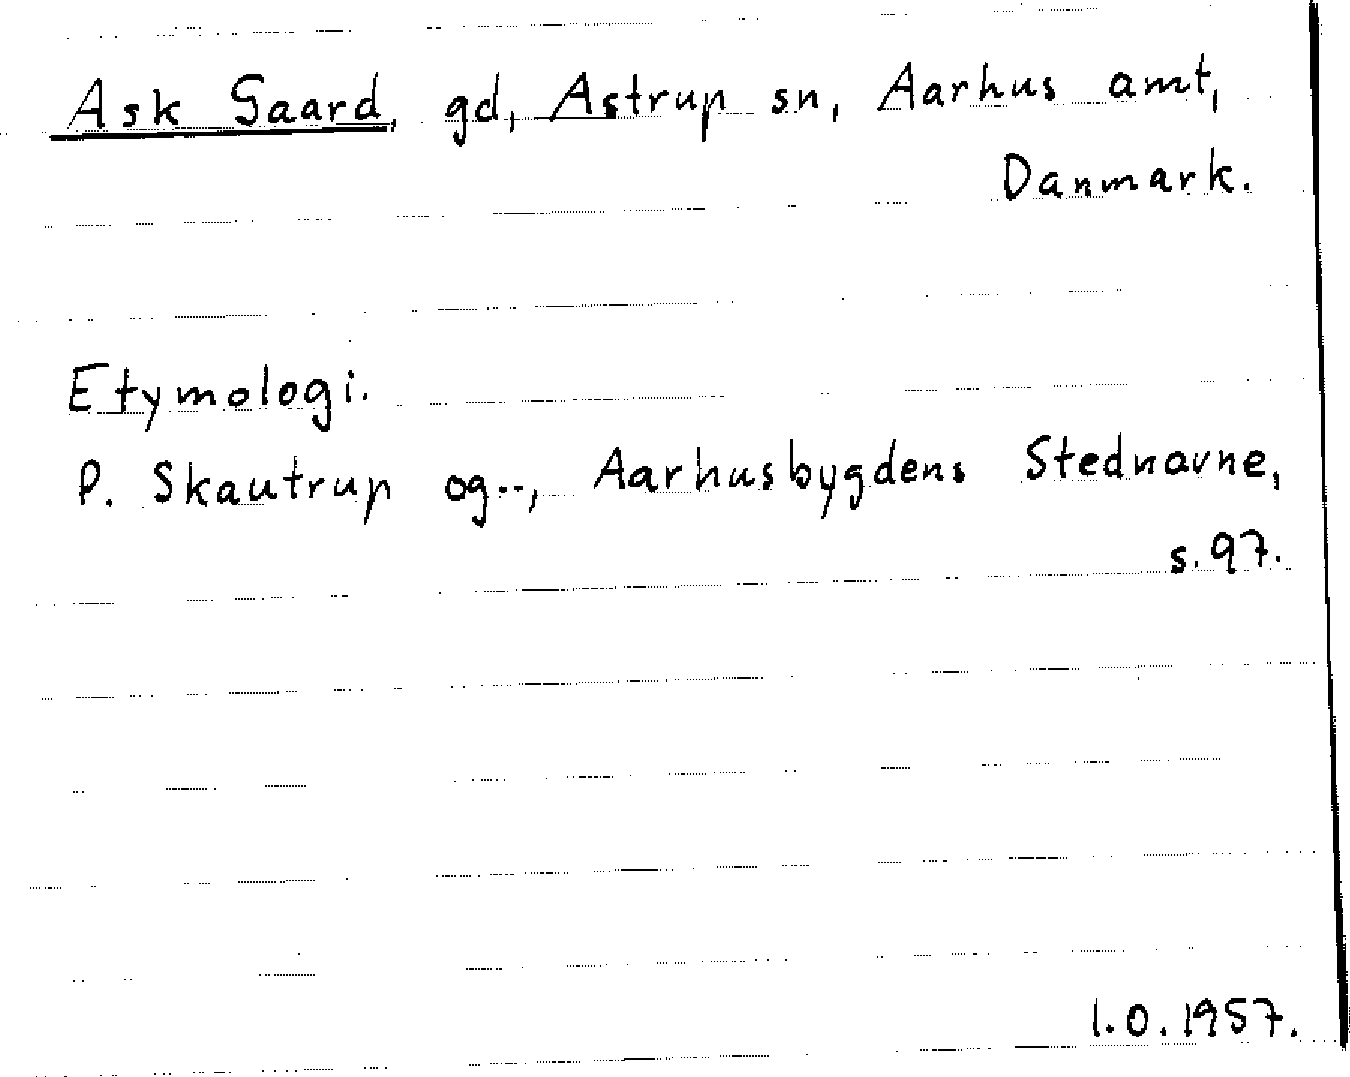 Ask Gaard, gd, Astrup sn, Aarhus amt,
Danmark.
Etymologi.
P. Skautrup og.., Aarhusbygdens Stednavne,
s. 97.
I.O. 1957.